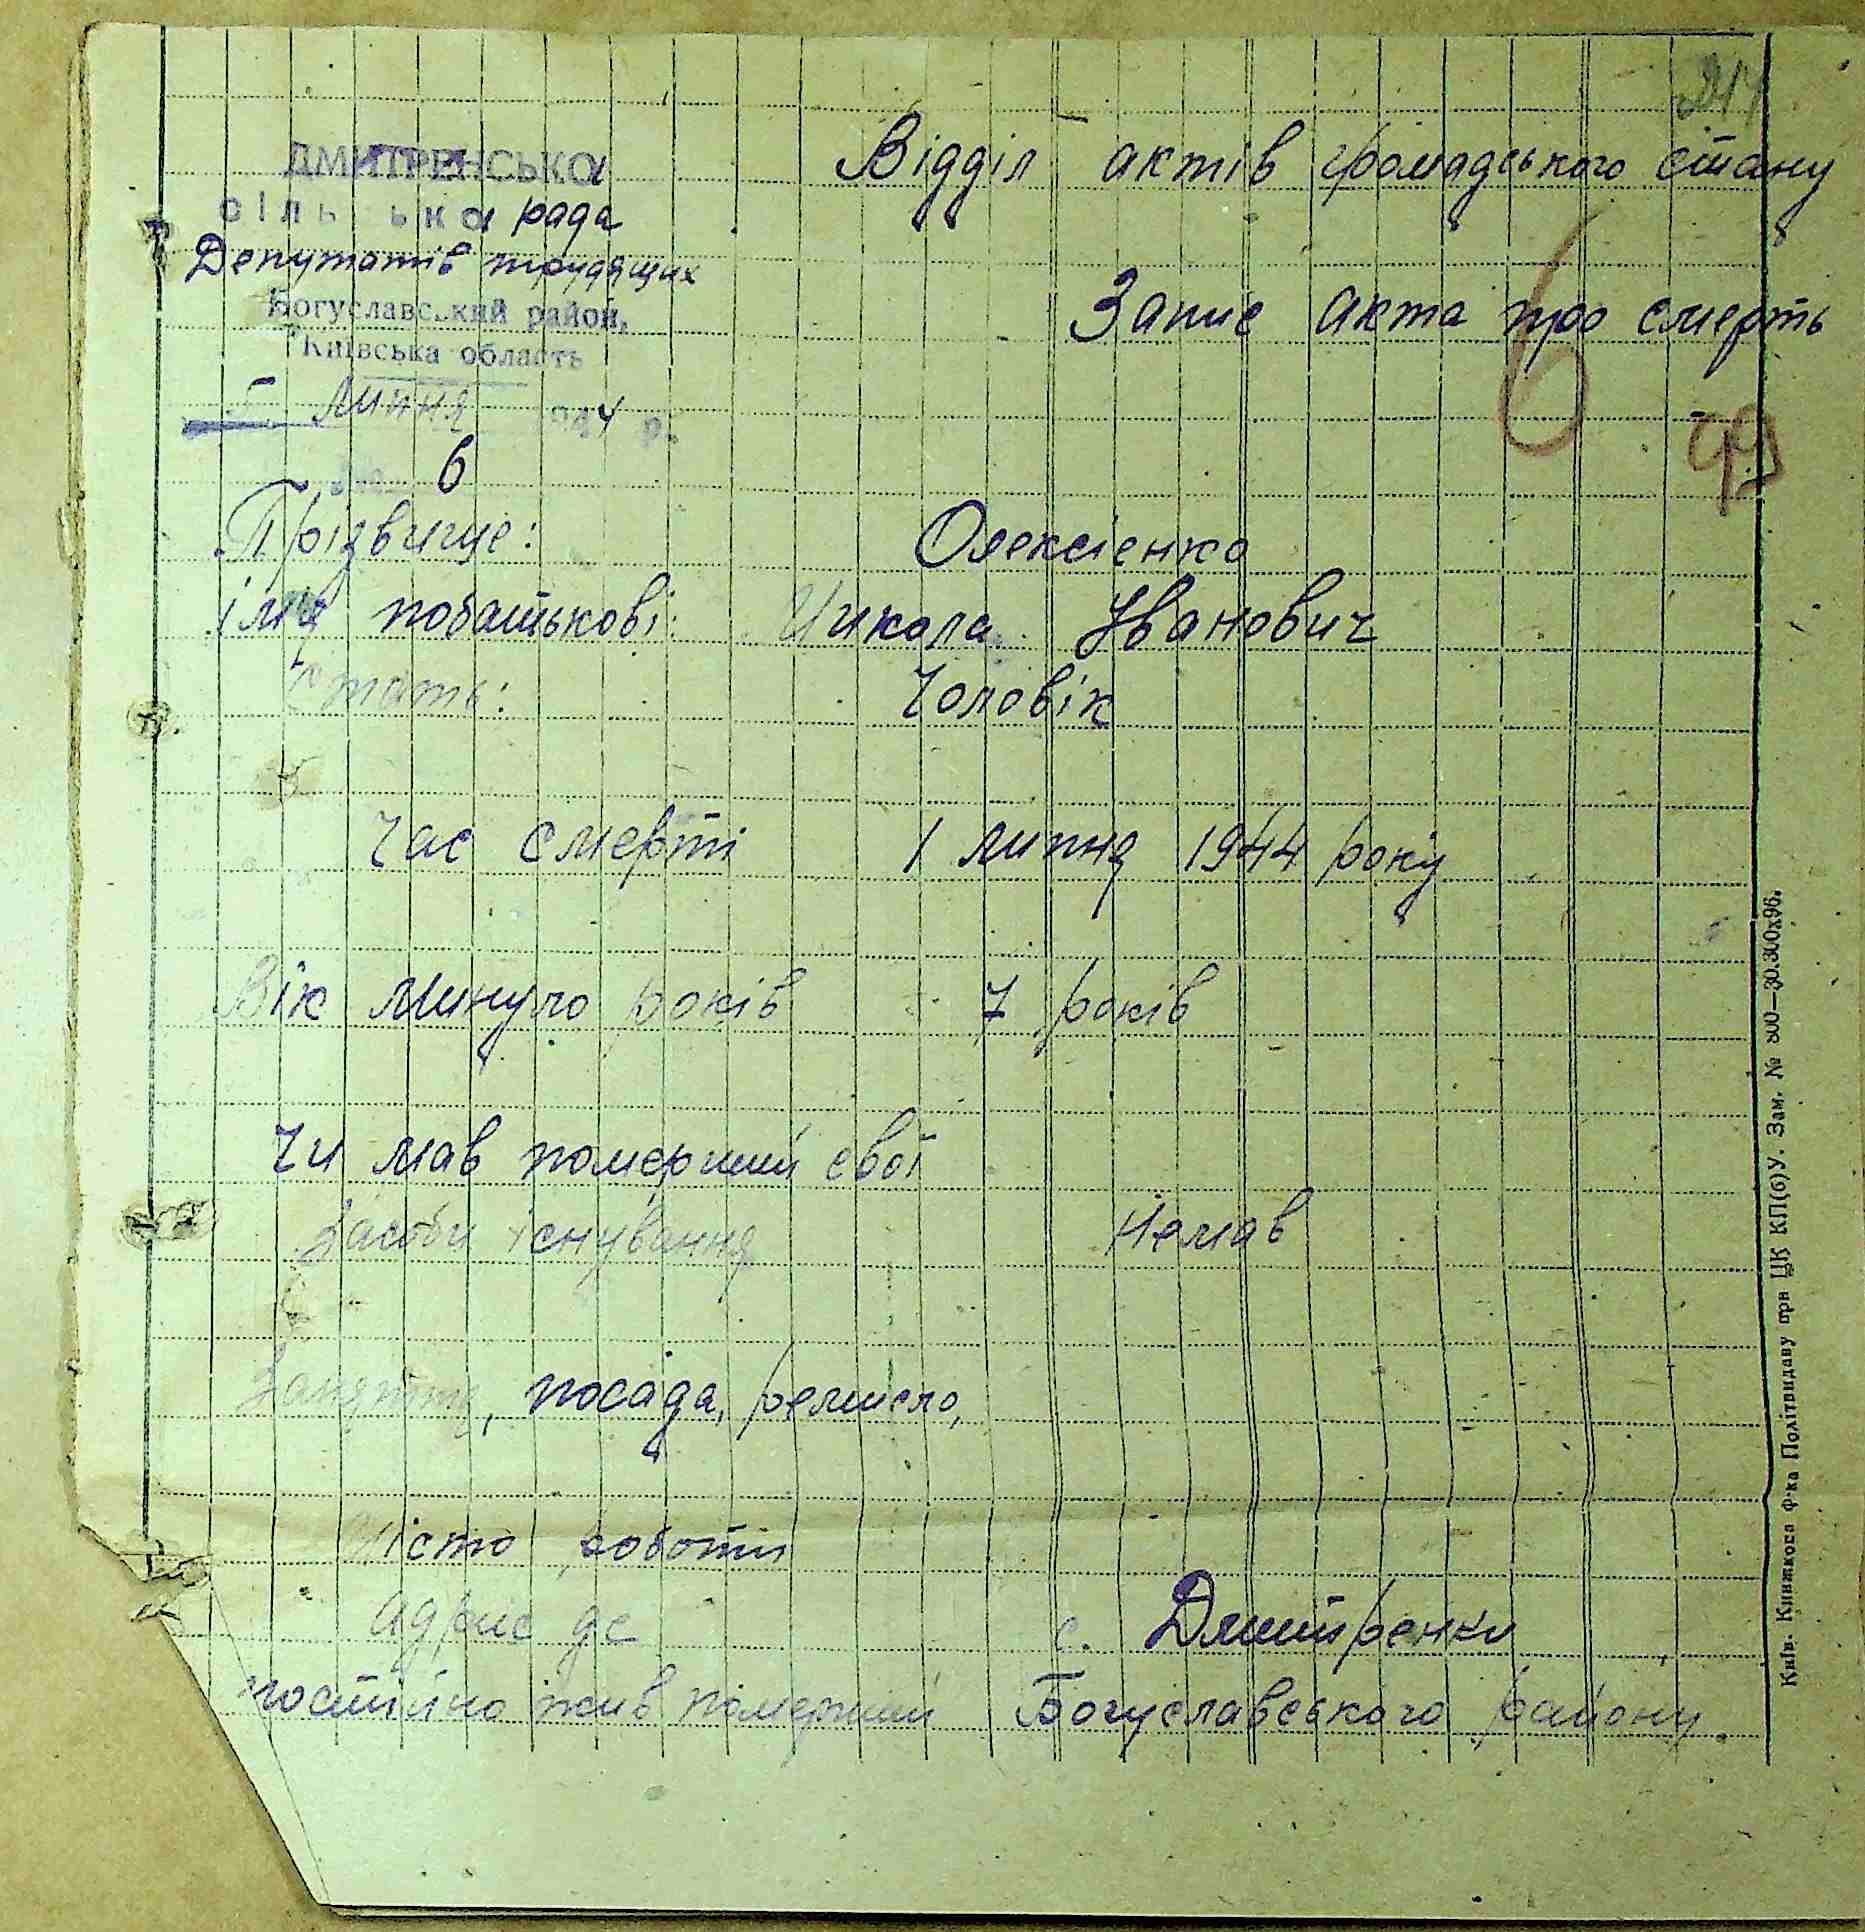 Відділ актів громадського стану
ДМИТРЕНСЬКА
сільська рада
Депутатів трудящих
Богуславський район,
Київська область
5 липня 1944 р.
№ 6
Запис акта про смерть
6
49
Прізвище: Олексієнко
імя побатькові: Микола Іванович
Стать: Чоловік
Час смерті 1 липня 1944 року
Вік минуло років 7 років
Чи мав померший свої
Засоби існування Немав
Заняття, посада, ремисло,
Місто роботи
адрис де с. Дмитренки
постійно жив померший Богуславського району
Київ. Книжкова ф-ка Політвидаву при ЦК КП(б)У. Зам. № 800—30.300х96.